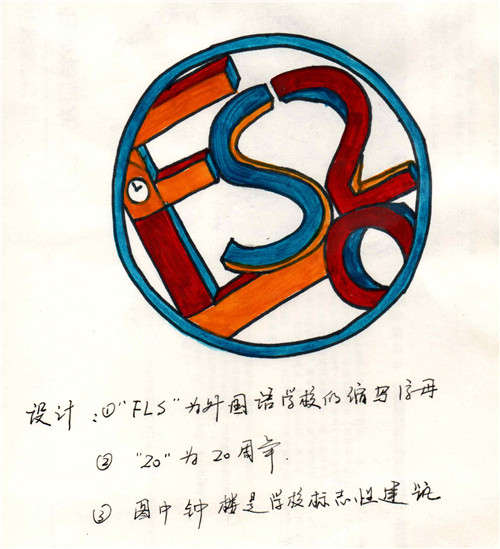 FLS20
设计：①"FLS"为外国语学校的缩写字母
② "20"为20周年.
③ 图中钟楼是学校标志性建筑